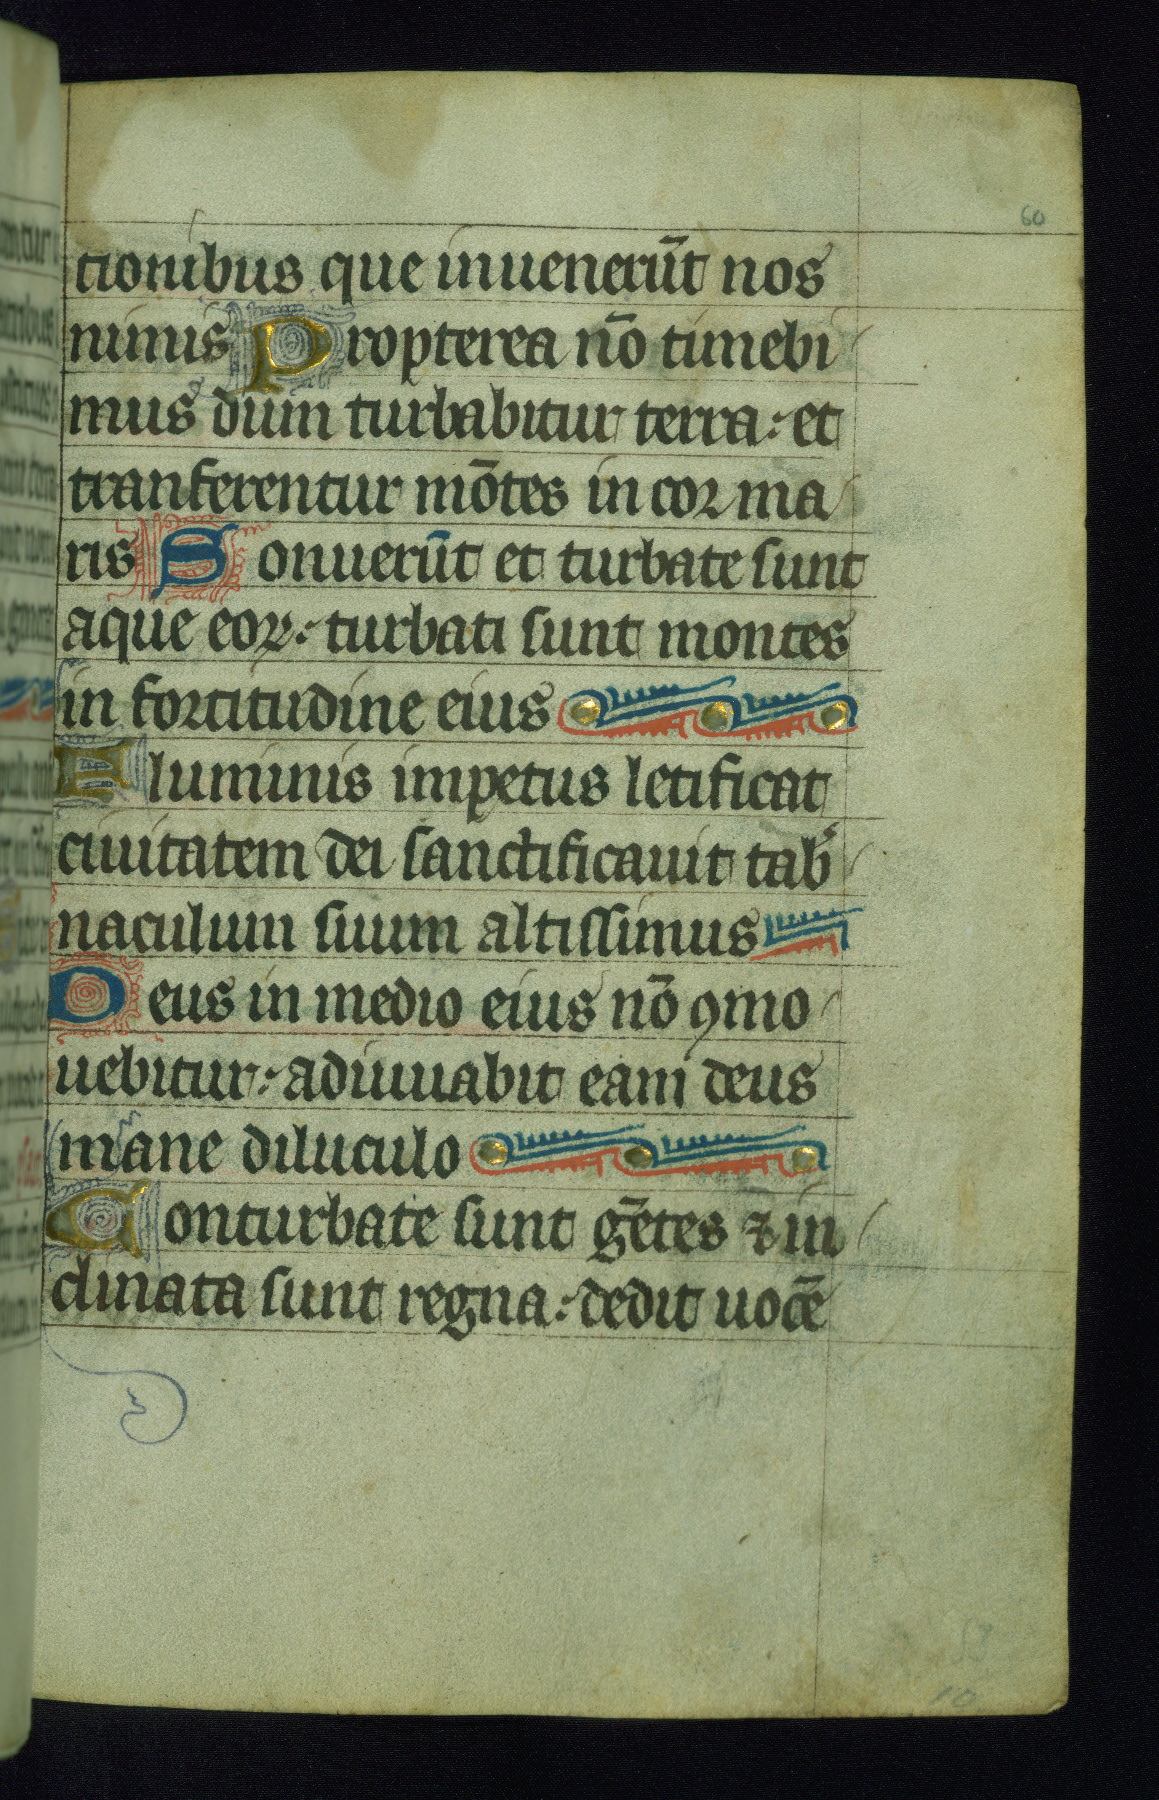 60
tionibus que inuenerūt nos
nimis Propterea nō timebi
mus dum turbabitur terra: et
tranferentur mōtes in cor ma
ris Sonuerūt et turbate sunt
aque eoꝝ: turbati sunt montes
in fortitudine eius
Fluminis impetus letificat
ciuitatem dei sanctificauit tab̾
naculum suum altissimus
Deus in medio eius nō ꝯmo
uebitur: adiuuabit eam deus
mane diluculo
Conturbate sunt gētes ⁊ in
clinata sunt regna: dedit uocē